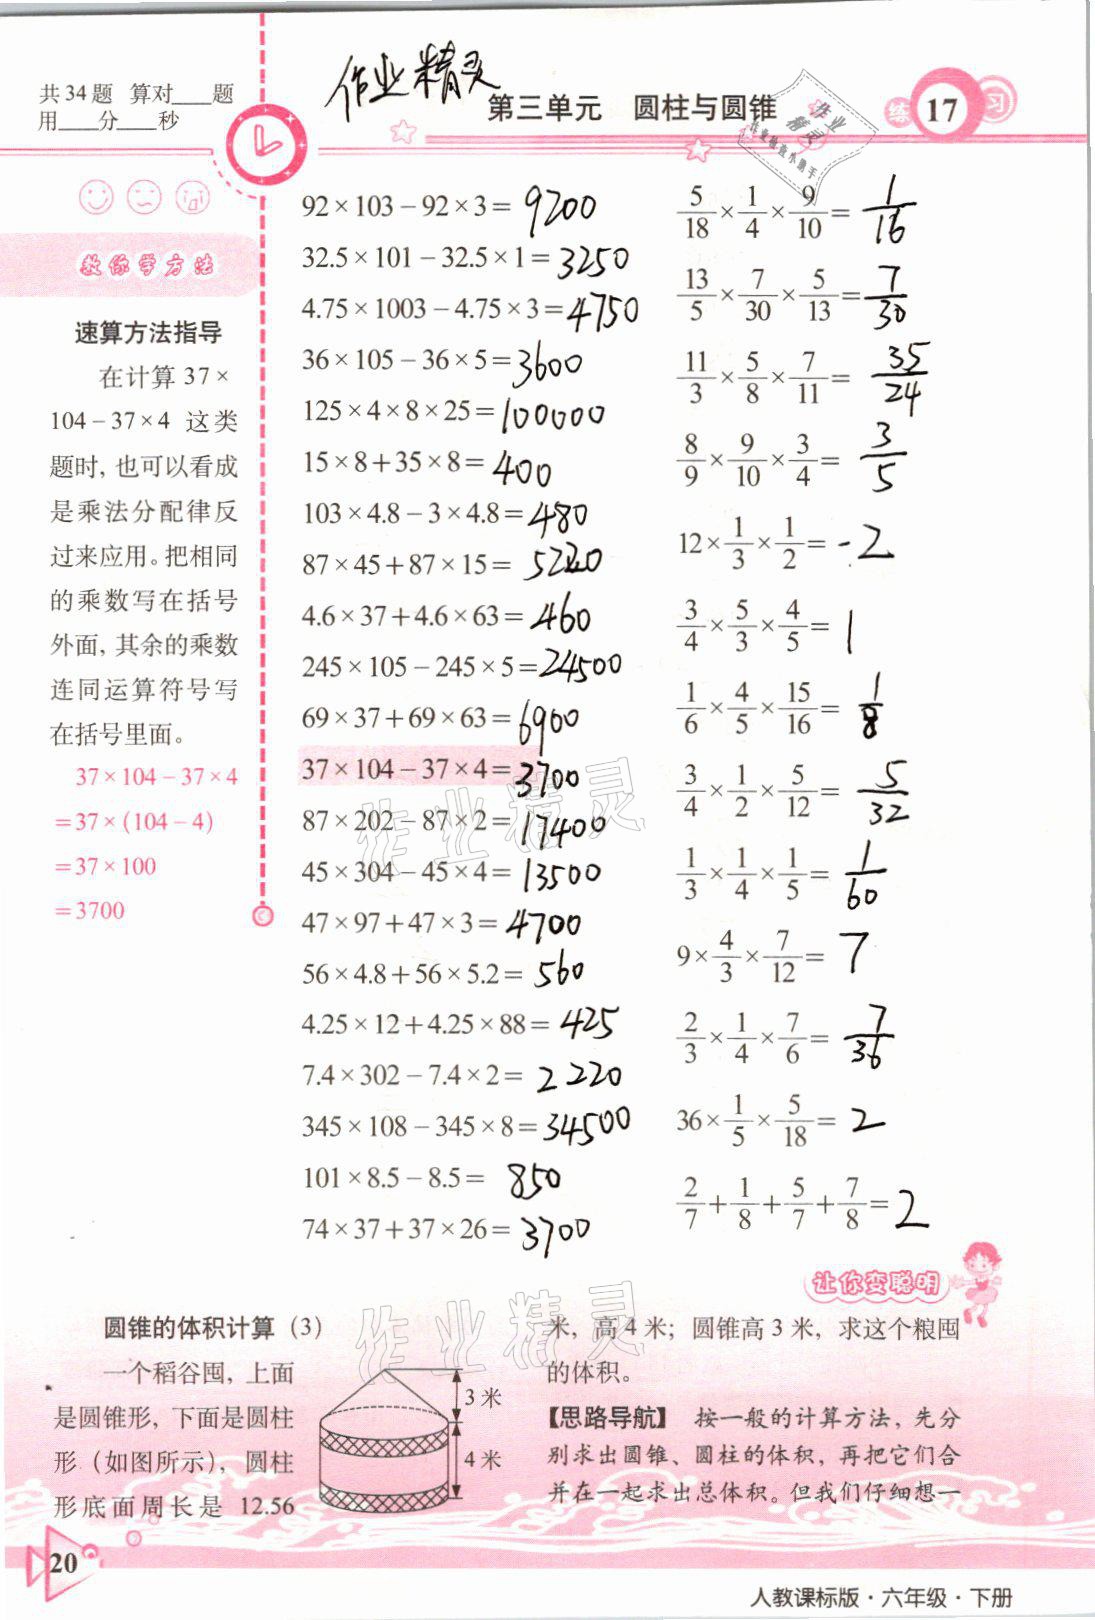 共34题 算对____题
用____分____秒
作业精灵
第三单元 圆柱与圆锥
练 17 习
作业精灵
作业检查小助手
教你学方法
速算方法指导
在计算 37×
104－37×4 这类
题时, 也可以看成
是乘法分配律反
过来应用。把相同
的乘数写在括号
外面, 其余的乘数
连同运算符号写
在括号里面。
37×104－37×4
=37×(104－4)
=37×100
=3700
92×103－92×3= 9200
32.5×101－32.5×1= 3250
4.75×1003－4.75×3= 4750
36×105－36×5= 3600
125×4×8×25= 100000
15×8+35×8= 400
103×4.8－3×4.8= 480
87×45+87×15= 5220
4.6×37+4.6×63= 460
245×105－245×5= 24500
69×37+69×63= 6900
37×104－37×4= 3700
87×202－87×2= 17400
45×304－45×4= 13500
47×97+47×3= 4700
56×4.8+56×5.2= 560
4.25×12+4.25×88= 425
7.4×302－7.4×2= 2220
345×108－345×8= 34500
101×8.5－8.5= 850
74×37+37×26= 3700
5/18×1/4×9/10= 1/16
13/5×7/30×5/13= 7/30
11/3×5/8×7/11= 35/24
8/9×9/10×3/4= 3/5
12×1/3×1/2= 2
3/4×5/3×4/5= 1
1/6×4/5×15/16= 1/8
3/4×1/2×5/12= 5/32
1/3×1/4×1/5= 1/60
9×4/3×7/12= 7
2/3×1/4×7/6= 7/36
36×1/5×5/18= 2
2/7+1/8+5/7+7/8= 2
作业精灵
让你变聪明
作业精灵
圆锥的体积计算 (3)
一个稻谷囤, 上面
是圆锥形, 下面是圆柱
形 (如图所示), 圆柱
形底面周长是 12.56
3 米
4 米
米, 高 4 米; 圆锥高 3 米, 求这个粮囤
的体积。
【思路导航】 按一般的计算方法, 先分
别求出圆锥、圆柱的体积, 再把它们合
并在一起求出总体积。但我们仔细想一
20
人教课标版·六年级·下册